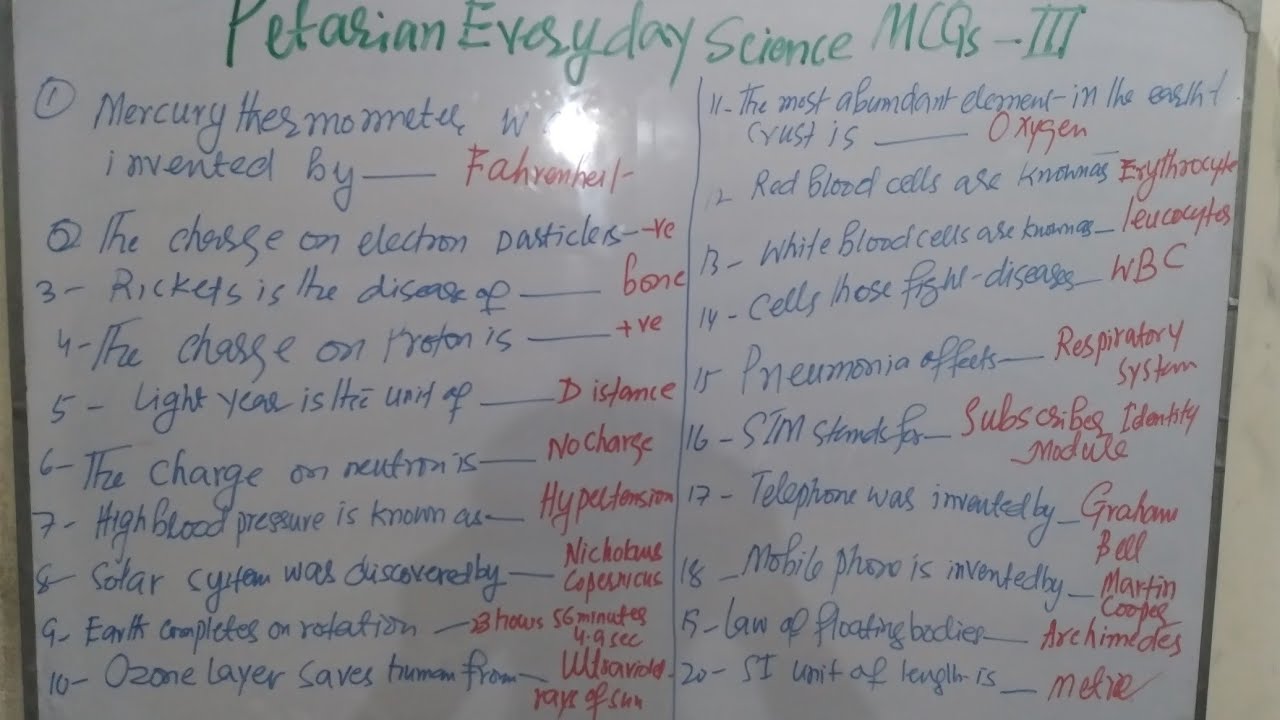 Petarian Everyday Science MCQs - III
① Mercury thermometer w
invented by — Fahrenheit
② The charge on electron particle is -ve
3 - Rickets is the disease of — bone
4 - The charge on Proton is — +ve
5 - Light year is the unit of — Distance
6 - The charge on neutron is — No charge
7 - High blood pressure is known as — Hypertension
8 - Solar system was discovered by — Nicholaus
Copernicus
9 - Earth completes on rotation — 23 hours 56 minutes
4.9 sec
10 - Ozone Layer saves human from — Ultraviolet
rays of sun
11 - The most abundant element in the earth
crust is — Oxygen
12 Red blood cells are known as Erythrocyte
13 - White blood cells are known as — leucocytes
14 - Cells those fight diseases — WBC
15 Pneumonia affects — Respiratory
System
16 - SIM stands for — Subscriber Identity
Module
17 - Telephone was invented by — Graham
Bell
18 - Mobile phone is invented by — Martin
Cooper
19 - Law of floating bodies — Archimedes
20 - SI unit of length is — metre